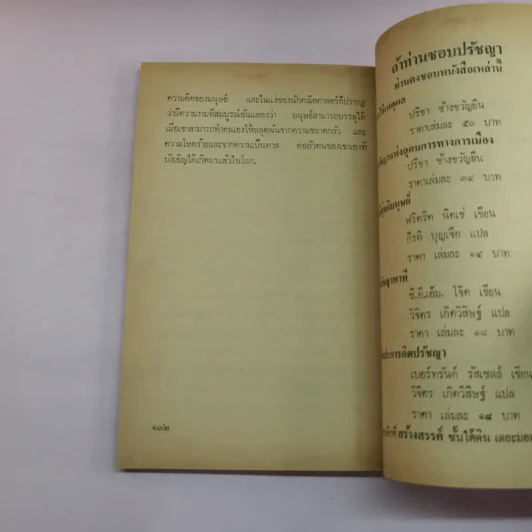 ความคิดของมนุษย์ และในแง่ของนักคณิตศาสตร์ก็ปรากฏ
ว่ามีความงามที่สมบูรณ์เช่นแสดงว่า มนุษย์สามารถบรรลุได้
เมื่อเขาสามารถทำตนเองให้หลุดพ้นจากความขลาดกลัว และ
ความโหดร้ายและจากความเป็นทาส ต่อตัวตนของเขาเองที่
บังเอิญได้เกิดมาแล้วในโลก.
๑๓๒
ถ้าท่านชอบปรัชญา
ท่านคงชอบหนังสือเหล่านี้
ปรีชา ช้างขวัญยืน
ราคาเล่มละ ๕๐ บาท
อุดมการทางการเมือง
ปรีชา ช้างขวัญยืน
ราคาเล่มละ ๓๔ บาท
ฟรีดริค นิตเช่ เขียน
กีรติ บุญเจือ แปล
ราคา เล่มละ ๑๔ บาท
ซี.อี.เอ็ม. โจ้ด เขียน
วิจิตร เกิดวิสิษฐ์ แปล
ราคา เล่มละ ๑๘ บาท
การคิดปรัชญา
เบอร์ทรันด์ รัสเซลล์ เขียน
วิจิตร เกิดวิสิษฐ์ แปล
ราคา เล่มละ ๑๘ บาท
สร้างสรรค์ ชั้นใต้ดิน เดอะมอ